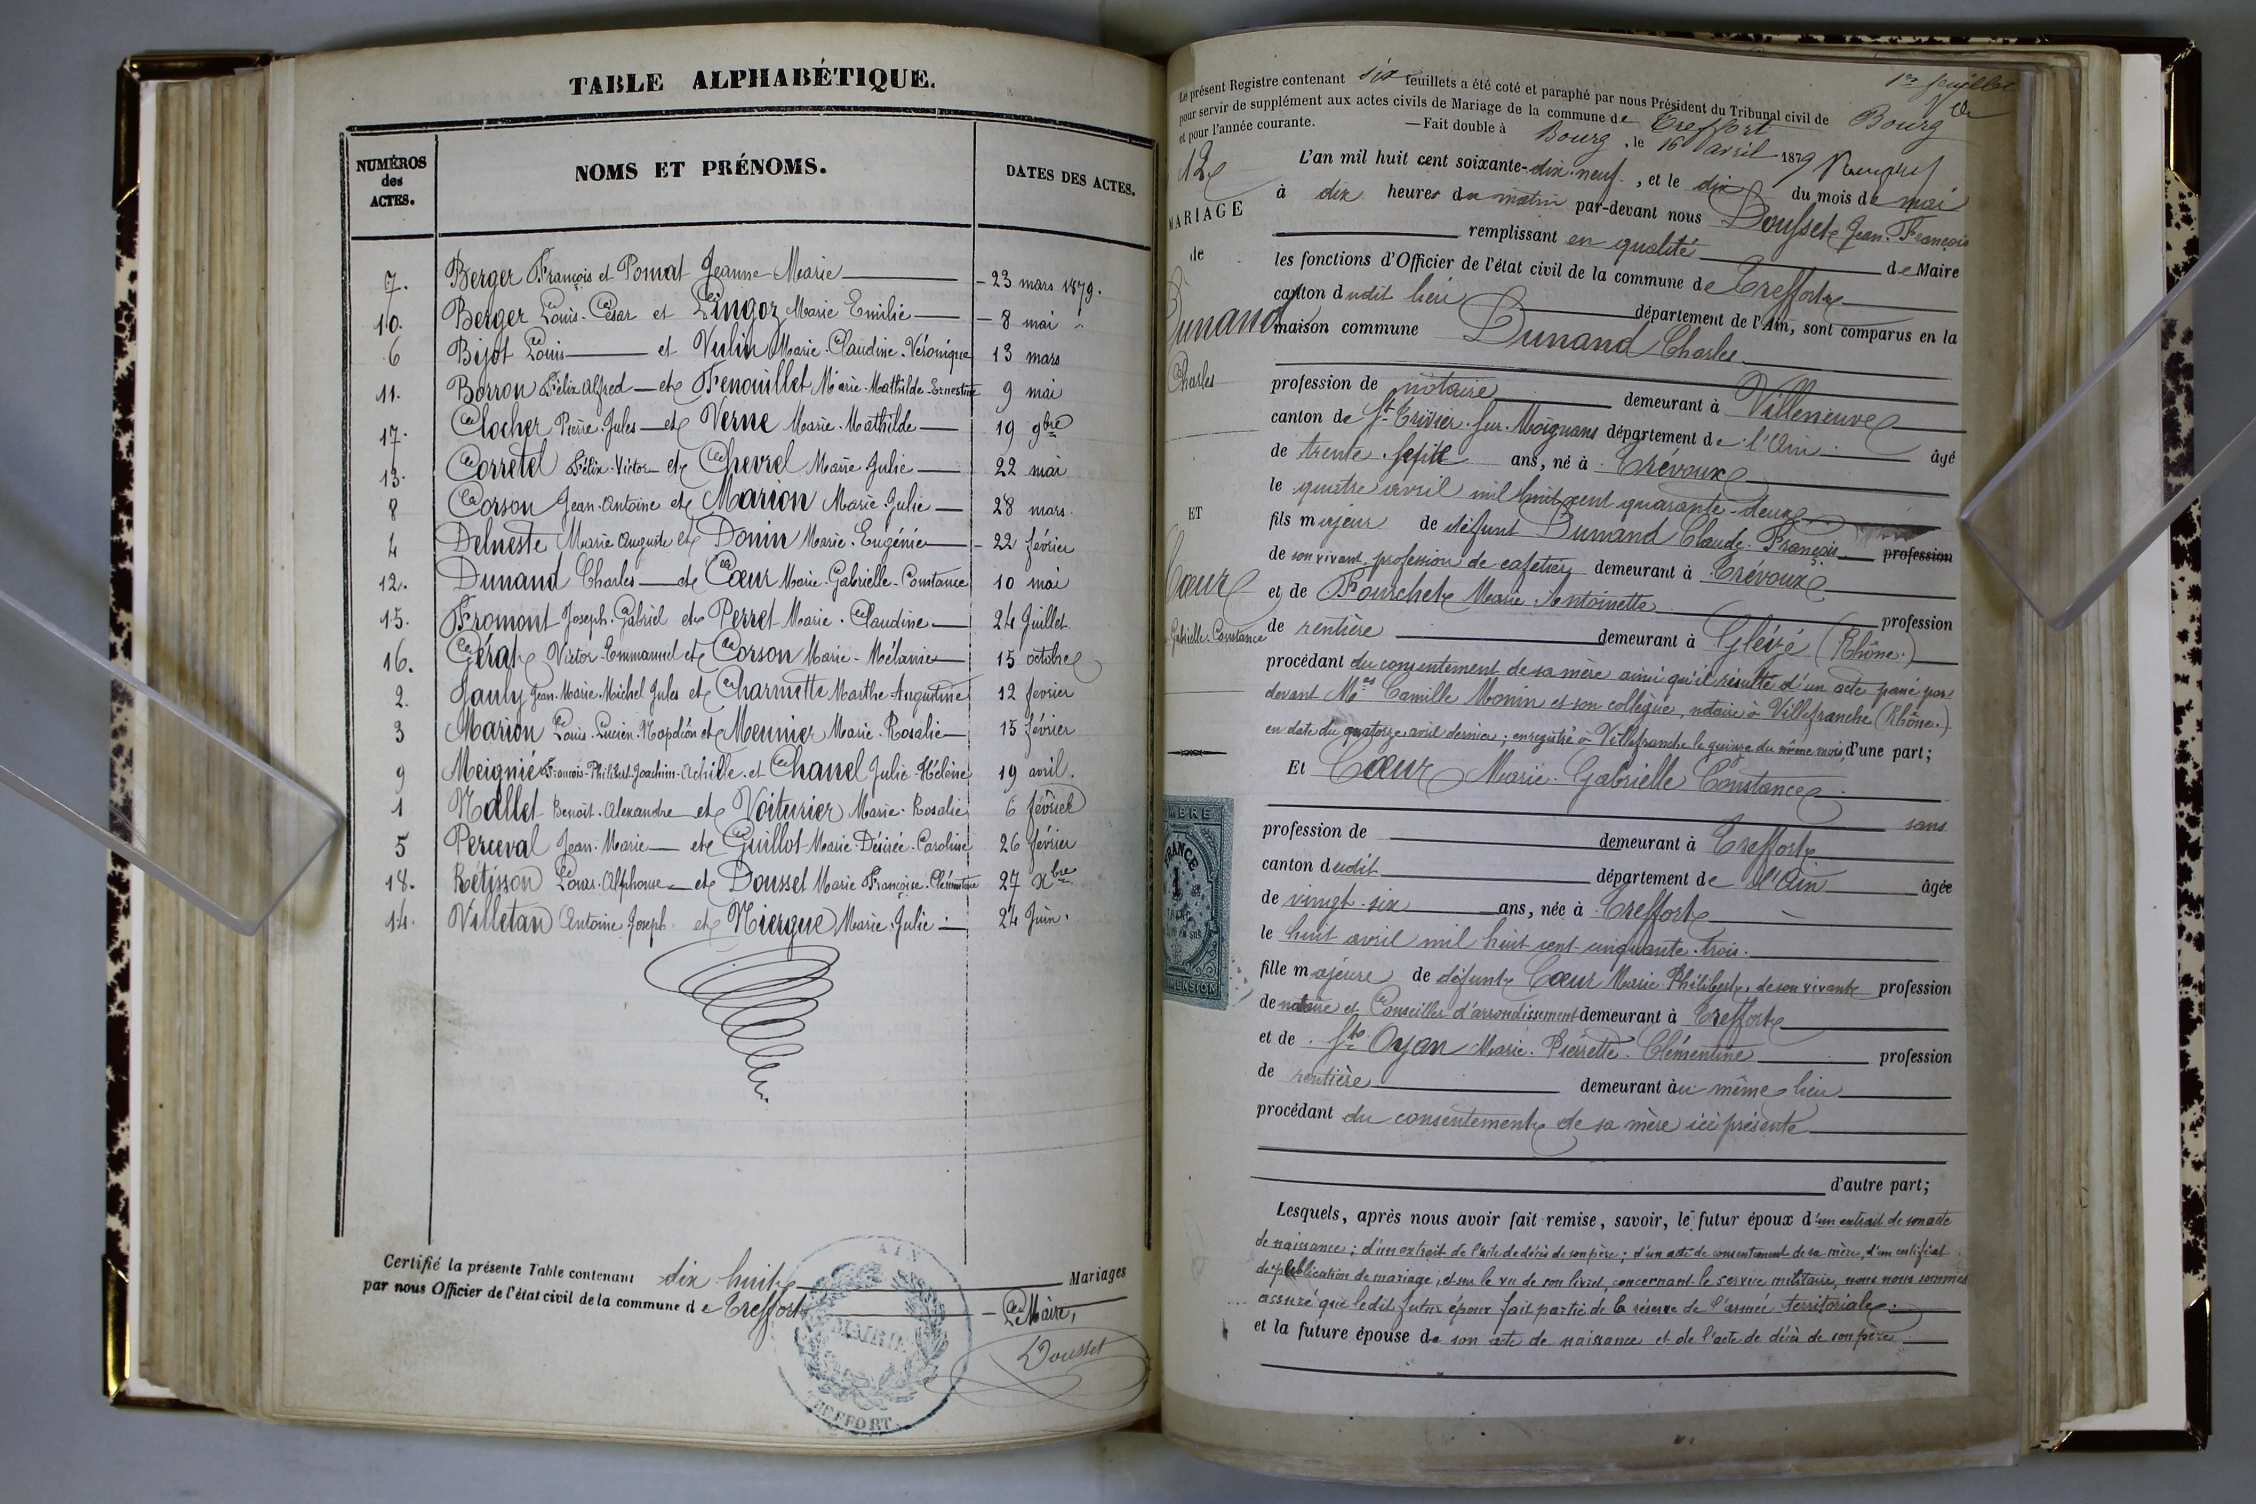 TABLE ALPHABÉTIQUE.
NUMÉROS des ACTES.
NOMS ET PRÉNOMS.
DATES DES ACTES.
7. Berger François et Pomat Jeanne Marie — 23 mars 1879.
10. Berger Louis-César et Lingoz Marie Emilie — 8 mai "
6 Bijot Louis — et Vulin Marie-Claudine-Véronique 13 mars
11. Borron Félix Alfred — et Fenouillet Marie-Mathilde-Ernestine 9 mai
17. Clocher Pierre Jules — et Verne Marie-Mathilde — 19 9bre
13. Corretel Félix-Victor et Chevrel Marie Julie — 22 mai
8 Corson Jean-Antoine et Marion Marie-Julie — 28 mars.
4 Delneste Marie Auguste et Donin Marie-Eugénie — 22 février
12. Dunand Charles — et Cœur Marie-Gabrielle-Constance 10 mai
15. Fromont Joseph-Gabriel et Perret Marie-Claudine — 24 Juillet.
16. Gérat Victor-Emmanuel et Corson Marie-Mélanie — 15 octobre
2. Jauly Jean-Marie-Michel Jules et Charmette Marthe-Augustine 12 fevrier
3 Marion Louis-Lucien-Napoléon et Meunier Marie-Rosalie — 15 février
9 Meignié François-Philibert-Joachim-Achille et Chanel Julie-Hélène 19 avril.
1 Nallet Benoît-Alexandre et Voiturier Marie-Rosalie 6 février
5 Perceval Jean-Marie — et Guillot Marie-Désirée-Caroline 26 février
18. Rétisson Louis-Alphonse — et Dousset Marie Françoise-Clémentine 27 Xbre
14. Villetan Antoine Joseph et Niergue Marie-Julie — 24 Juin.
Certifié la présente Table contenant dix huit Mariages
par nous Officier de l'état civil de la commune de Treffort — Le Maire,
Dousset
AIN
MAIRIE
TREFFORT
1er feuillet
Le présent Registre contenant six feuillets a été coté et paraphé par nous Président du Tribunal civil de Bourg
pour servir de supplément aux actes civils de Mariage de la commune de Treffort
et pour l'année courante. — Fait double à Bourg, le 16 avril 1879
12e
MARIAGE
de
Dunand
Charles
ET
Cœur
Gabrielle-Constance
L'an mil huit cent soixante-dix-neuf, et le dix du mois de mai
à dix heures du matin par-devant nous Dousset Jean-François
remplissant en qualité de Maire
les fonctions d'Officier de l'état civil de la commune de Treffort
canton dudit lieu département de l'Ain, sont comparus en la
maison commune Dunand Charles
profession de notaire demeurant à Villeneuve
canton de St-Trivier-sur-Moignans département de l'Ain âgé
de trente-sept ans, né à Trévoux
le quatre avril mil huit cent quarante-deux
fils majeur de défunt Dunand Claude-François profession
de son vivant profession de cafetier demeurant à Trévoux
et de Fourchet Marie Antoinette profession
de rentière demeurant à Gleizé (Rhône.)
procédant du consentement de sa mère ainsi qu'il résulte d'un acte passé par
devant Mes Camille Monin et son collègue, notaire à Villefranche (Rhône.)
en date du quatorze avril dernier; enregistré à Villefranche le quinze du même mois, d'une part;
Et Cœur Marie-Gabrielle Constance
sans
profession de demeurant à Treffort
canton dudit département de l'Ain âgée
de vingt-six ans, née à Treffort
le huit avril mil huit cent cinquante-trois.
fille majeure de défunt Cœur Marie Philibert, de son vivant profession
de notaire et Conseiller d'arrondissement demeurant à Treffort
et de Ste Oyan Marie-Pierrette-Clémentine profession
de rentière demeurant au même lieu
procédant du consentement de sa mère ici présente
d'autre part;
Lesquels, après nous avoir fait remise, savoir, le futur époux d'un extrait de son acte
de naissance; d'un extrait de l'acte de décès de son père; d'un acte de consentement de sa mère, d'un certificat
de publication de mariage, et sur le vu de son livret, concernant le service militaire, nous nous sommes
assuré que ledit futur époux fait partie de la réserve de l'armée territoriale.
et la future épouse de son acte de naissance et de l'acte de décès de son père
FRANCE
1
DIMENSION